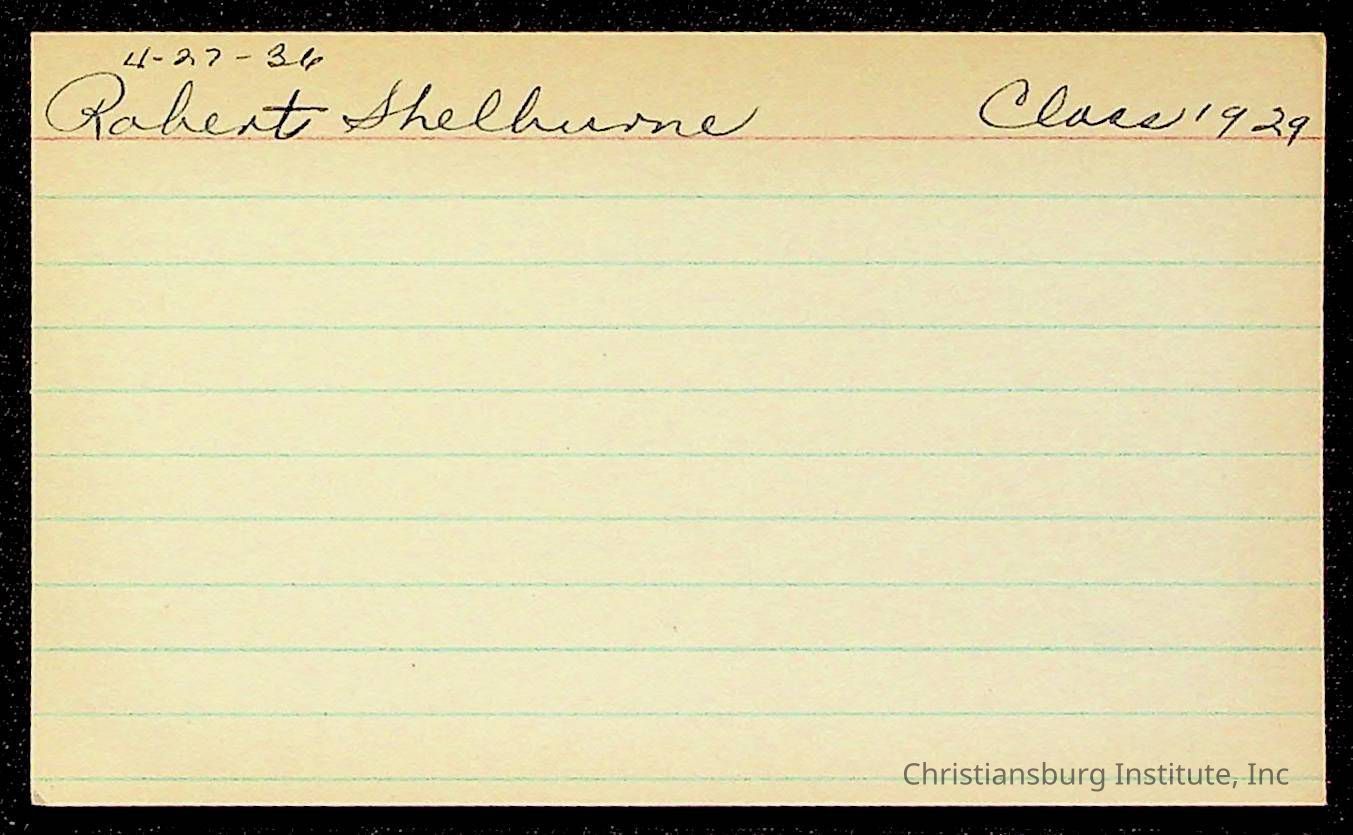 4-27-36
Robert Shelburne Class 1929
Christiansburg Institute, Inc